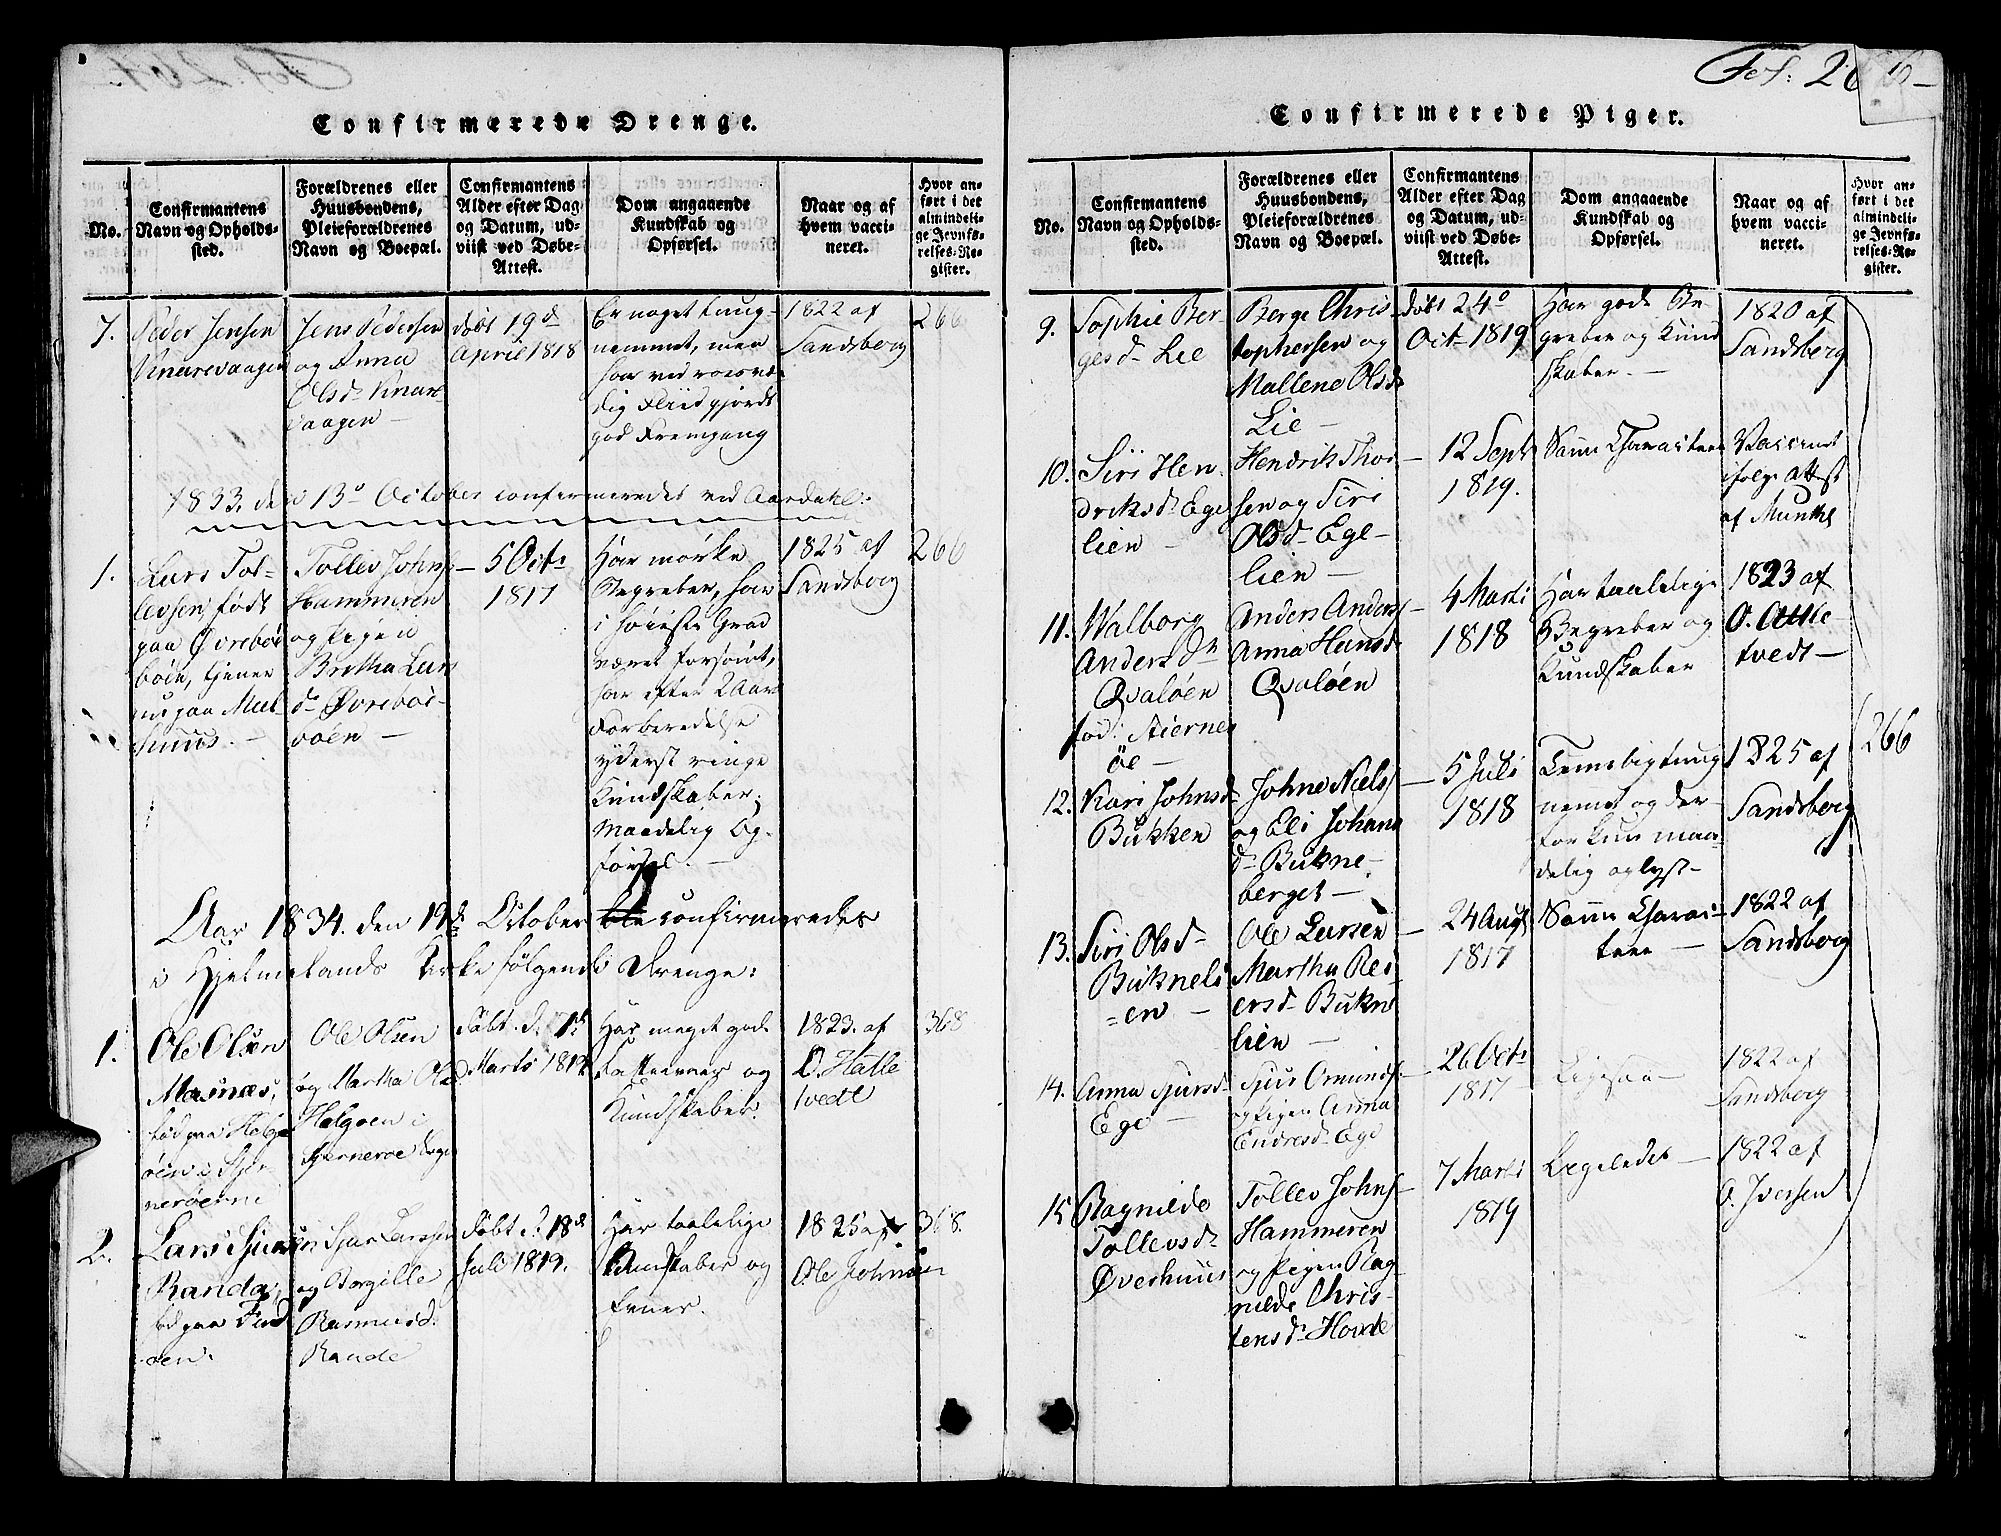 Fol: 26
Confirmerede Drenge.
No.
Confirmantens
Navn og Opholds-
sted.
Forældrenes eller
Huusbondens,
Pleieforældrenes
Navn og Boepæl.
Confirmantens
Alder efter Dag
og Datum, ud-
viist ved Døbe-
Attest.
Dom angaaende
Kundskab og
Opførsel.
Naar og af
hvem vacci-
neret.
Hvor an-
ført i det
almindeli-
ge Jevnfø-
relses-Re-
gister.
7.
Peder Jensen
Knarevaagen
Jens Pedersen
og Anna
Olsd. Knar-
vaagen
døbt 19d
April 1818
Er noget tung-
nemmet, men
har ved
dig Fliid gjordt
god Fremgang
1822 af
Sandsberg
266
1833, den 13o October confirmeredes ved Aardahl:
1.
Lars Tol-
levsen, født
paa Ovreboe
boen, tjener
nu paa Mul-
huus.
Tollev Johns
Hammeren
og Pigen
Britha Lars
d. Øvreboe-
voen
5 Octr
1817
Har mørke
Begreber, har
i høieste Grad
været forsømt,
har efter 2 Aars
Forberedelse
yderst ringe
Kundskaber;
Maadelig Op-
førsel.
1825 af
Sandsberg
266
Aar 1834. den 19de October confirmeredes
i Hjelmelands Kirke følgende Drenge:
1.
Ole Olsen
Masnæs,
fød paa Helge
øen i Stjer
nerøerne
Ole Olsen
og Martha Olsd.
Helgoen i
Stjerneroe
Døbt d. 1d
Marts 1819
Har meget gode
og
Kundskaber.
1823. af
O. Hatle
tvedt
368
2.
Lars Sjursen
Randa,
fød paa Find
øen.
Sjur Larssen
og Borgille
Rasmusd.
Rande
Døbt d. 18d
Juli 1819.
Har taalelige
Kundskaber og
Evner.
1825 af
Ole Johnsen
368.
Confirmerede Piger.
No.
Confirmantens
Navn og Opholds-
sted.
Forældrenes eller
Huusbondens,
Pleieforældrenes
Navn og Boepæl.
Confirmantens
Alder efter Dag
og Datum, ud-
viist ved Døbe-
Attest.
Dom angaaende
Kundskab og
Opførsel.
Naar og af
hvem vacci-
neret.
Hvor an-
ført i det
almindeli-
ge Jevnfø-
relses-Re-
gister.
9.
Sophie Ber-
gesd. Lie
Berge Chris
tophersen og
Mallene Olsd.
Lie
døbt 24o
Oct. 1819
Har gode Be-
greber og Kund
skaber.
1820 af
Sandsberg
10.
Siri Hen
driksd. Ege
lien
Hendrik Thor
sen og Siri
Olsd. Ege-
lien
12 Septr
1819.
Samme Character
Vaccineret
ifølge Attest
af Munthe
11.
Walborg
Andersdr
Qvaløen
fød: Stiernes
öe
Anders Anders
Anna Hansd
Qvaløen
4 Marti
1818
Har taalelige
Begreber og
Kundskaber
1823 af
O. Attle
tvedt
12.
Kari Johnsd-
Bukken
Johne Niels
og Eli Johans
d. Bukne-
berget
5 Juli
1818
Temelig tung
nemet og der-
for kun maa-
delig oplyst
1825 af
Sandsberg
266
13.
Siri Olsd
Bukneli
=en
Ole Larsen
Martha Rei
ersd. Bukne
lien
24 Augt
1817
Samme Charac-
teer
1822 af
Sandsberg
14.
Anna Sjursd
Ege
Sjur Omunds
og Pigen Anna
Endresd. Ege
26 Octr
1817
Ligesaa
1822 af
Sandsberg
15
Ragnilde
Tollevsd
Øverhuus
Tollev Johns
Hammeren
og Pigen Rag
nilde Chris-
tensd. Hovde
7 Marti
1819
Ligeledes
1822 af
O. Iversen